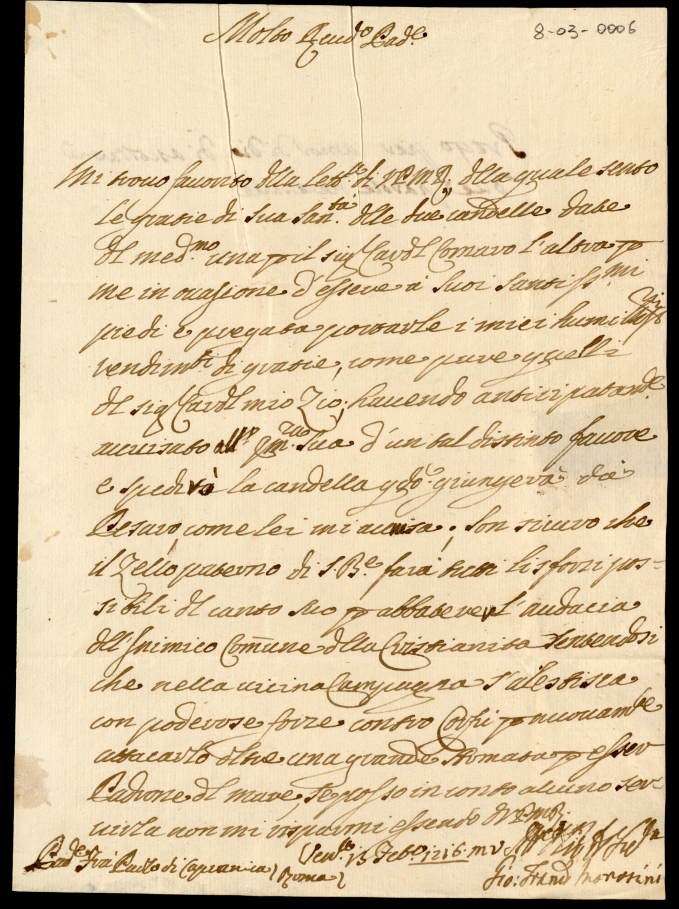 8-03-0006
Molto Rendo Padre
Mi trovo favorito dlla lettra di V.P.M.R. dlla quale sento
le gratie di Sua Santà dlle due candelle date
dl medmo una p il sigr Cardl Cornaro l'altra p
me in ocasione d'essere a' suoi santissmi
piedi e pregata portarle i miei humilissmi
rendimti di gratie, come pure quelli
dl sigr Cardl mio Zio, havendo anticipatamte
avvisato all' Emza Sua d'un tal distinto favore
e spedirà la candella qdo giungerà da
Pesaro, come lei mi avvisa; son sicuro che
il Zello paterno di S. Be farà tutti li sforzi pos=
sibili dl canto suo p abbatere l'audacia
dll'Inimico Comune dlla Cristianità sentendosi
che nella vicina Campagna s'alestisca
con poderose forze contro Corfù p nuovamte
attacarlo oltre una grande Armata p esser
Padrone dl mare, se posso in conto alcuno ser=
virla non mi risparmi essendo di V.P.M.R.
Venta 13 Febo 1716 m.v.
Padre Frà Paolo di Capranica / Roma /
Gio: Franco Morosini